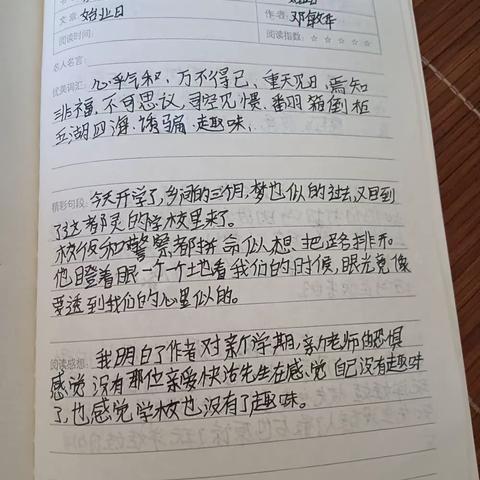 文章 始业日 作者: 邓敏华
阅读时间: 阅读指数: ☆ ☆ ☆ ☆ ☆
名人名言:
优美词汇: 心平气和、万不得已、重天见日、焉知
非福、不可思议、司空见惯、翻箱倒柜
五湖四海、诱骗、趣味、
精彩句段: 今天开学了,乡间的三个月,梦也似的过去,又回到
了这都灵的学校里来了。
校役和警察都拼命似想把路排开。
他瞪着眼一个一个地看我们的时候,眼光竟像
要透到我们的心里似的。
阅读感想: 我明白了作者对新学期,新老师的恐惧
感觉没有那位亲爱快活先生在感觉自己没有趣味
了,也感觉学校也没有了趣味。